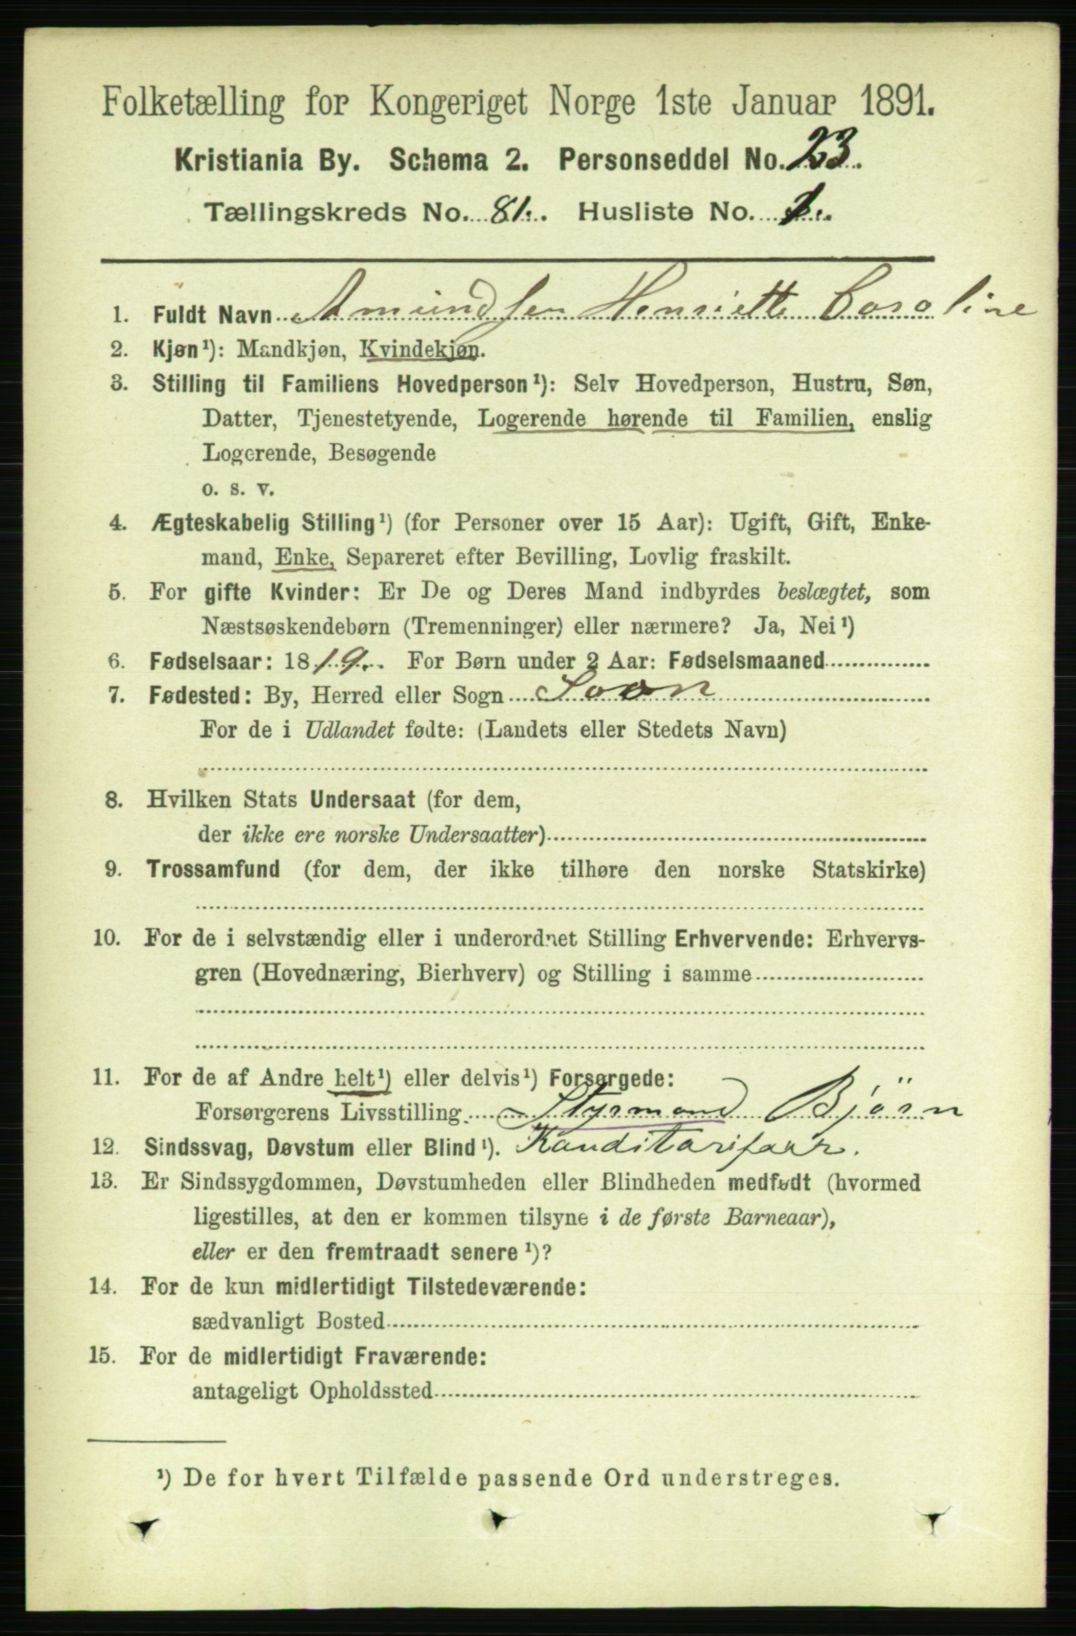 Folketælling for Kongeriget Norge 1ste Januar 1891.
Kristiania By. Schema 2. Personseddel No. 23.
Tællingskreds No. 81. Husliste No. 1.
1. Fuldt Navn Amundsen Henriette Caroline
2. Kjøn¹): Mandkjøn, Kvindekjøn.
3. Stilling til Familiens Hovedperson¹): Selv Hovedperson, Hustru, Søn,
Datter, Tjenestetyende, Logerende hørende til Familien, enslig
Logerende, Besøgende
o. s. v.
4. Ægteskabelig Stilling¹) (for Personer over 15 Aar): Ugift, Gift, Enke-
mand, Enke, Separeret efter Bevilling, Lovlig fraskilt.
5. For gifte Kvinder: Er De og Deres Mand indbyrdes beslægtet, som
Næstsøskendebørn (Tremenninger) eller nærmere? Ja, Nei¹)
6. Fødselsaar: 1819. For Børn under 2 Aar: Fødselsmaaned
7. Fødested: By, Herred eller Sogn Soon
For de i Udlandet fødte: (Landets eller Stedets Navn)
8. Hvilken Stats Undersaat (for dem,
der ikke ere norske Undersaatter)
9. Trossamfund (for dem, der ikke tilhøre den norske Statskirke)
10. For de i selvstændig eller i underordnet Stilling Erhvervende: Erhvervs-
gren (Hovednæring, Bierhverv) og Stilling i samme
11. For de af Andre helt¹) eller delvis¹) Forsørgede:
Forsørgerens Livsstilling Styrmand Björn
12. Sindssvag, Døvstum eller Blind¹).
13. Er Sindssygdommen, Døvstumheden eller Blindheden medfødt (hvormed
ligestilles, at den er kommen tilsyne i de første Barneaar),
eller er den fremtraadt senere¹)?
14. For de kun midlertidigt Tilstedeværende:
sædvanligt Bosted
15. For de midlertidigt Fraværende:
antageligt Opholdssted
¹) De for hvert Tilfælde passende Ord understreges.